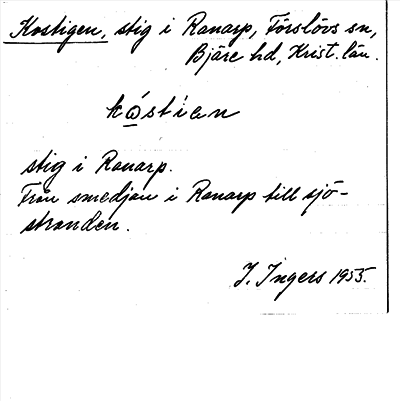 Kostigen, stig i Ranarp, Förslövs sn,
Bjäre hd, Krist. län.
kóstian
stig i Ranarp.
Från smedjan i Ranarp till sjö-
stranden.
J. Ingers 1955.